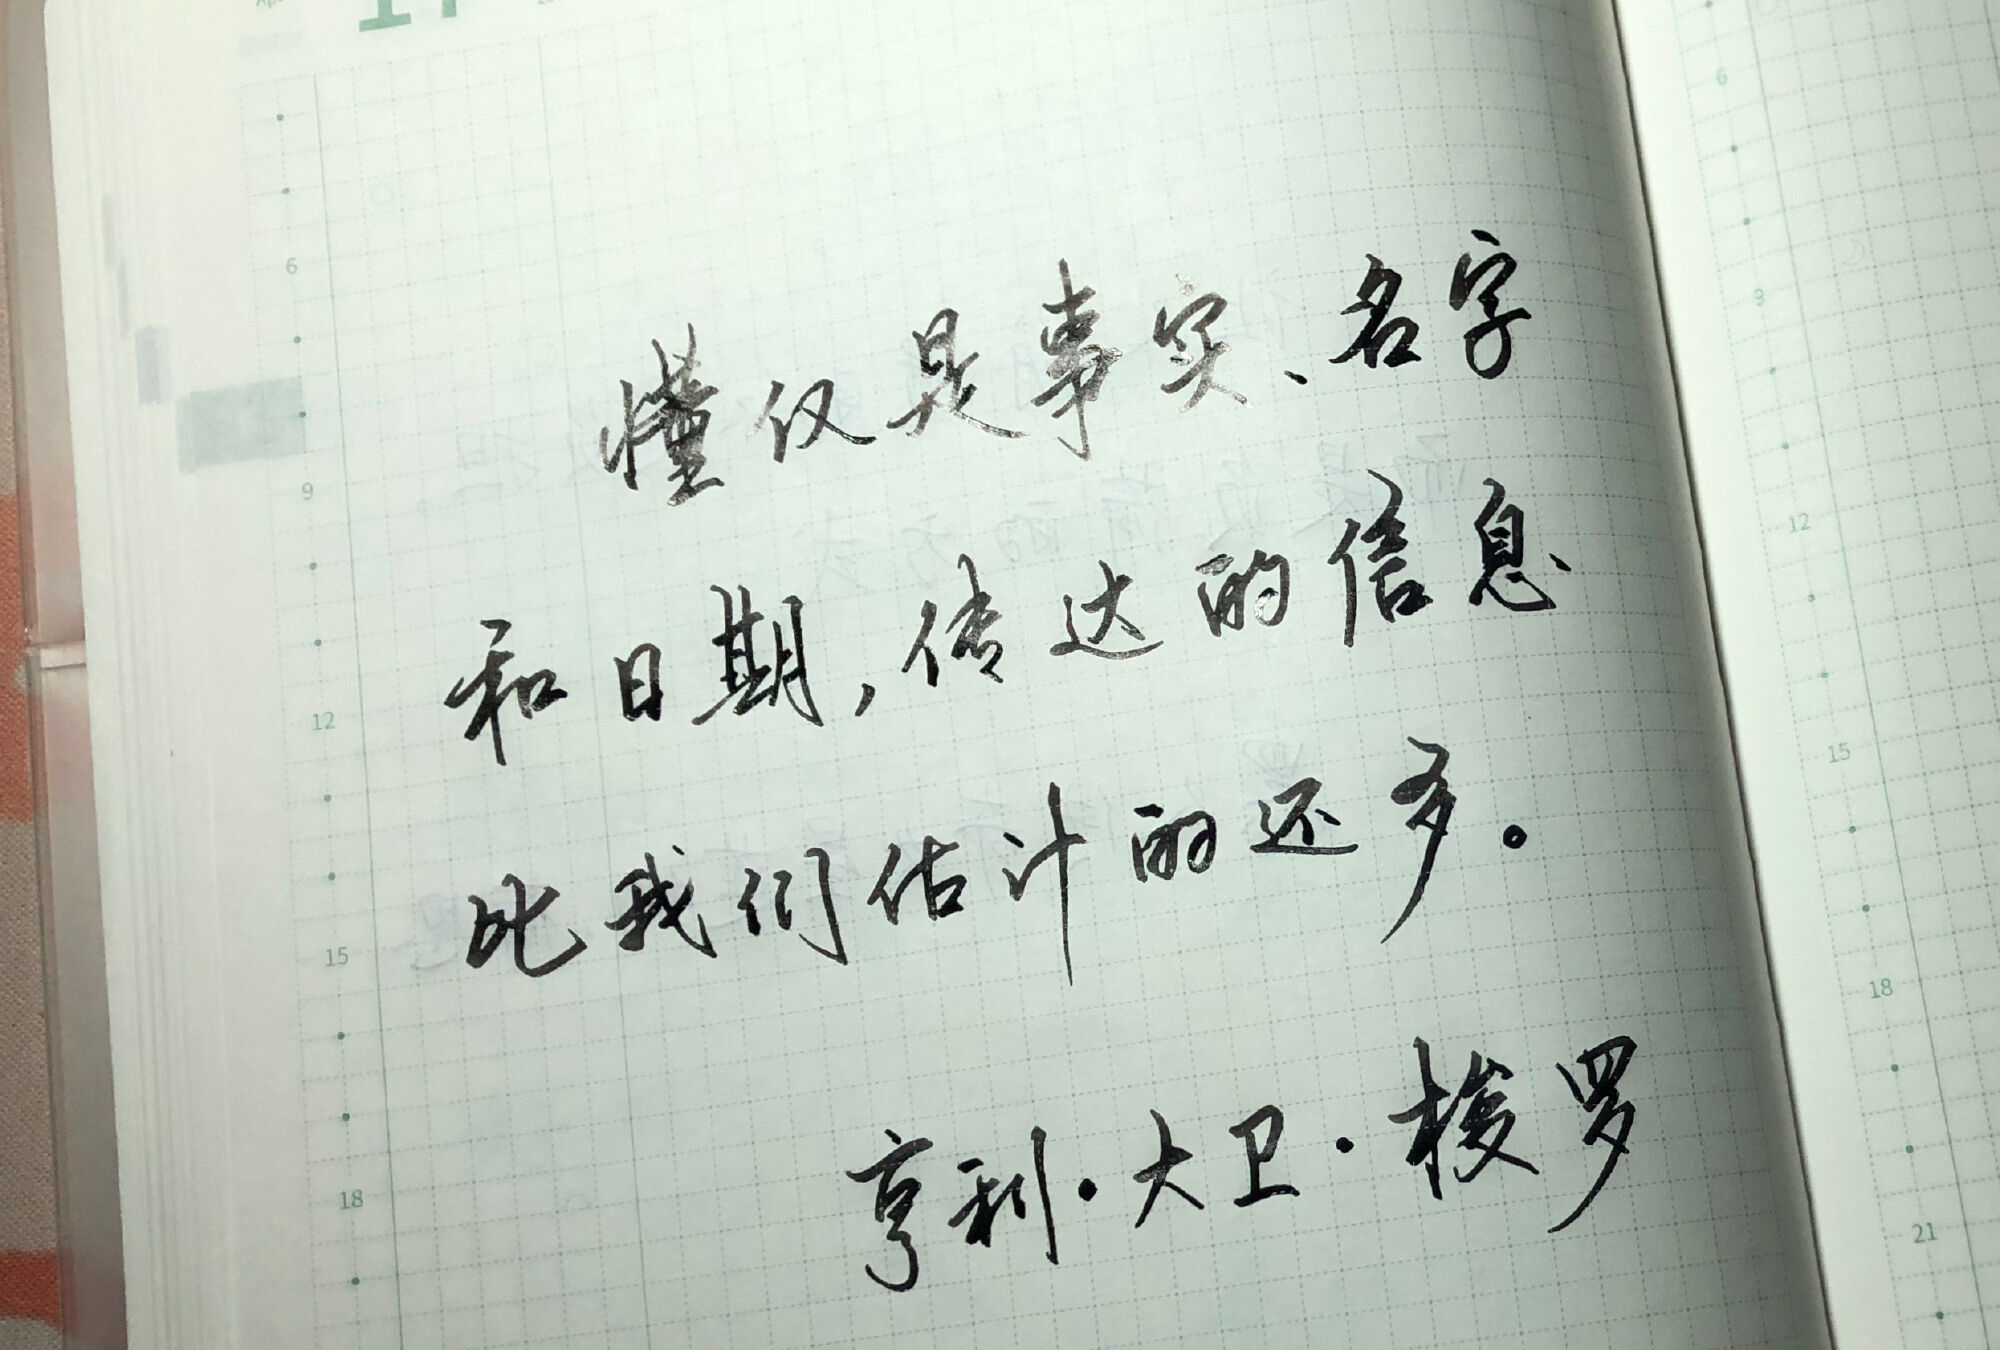 17
懂仅是事实、名字
和日期,传达的信息
比我们估计的还多。
亨利·大卫·梭罗
6
9
12
15
18
6
9
12
15
18
21